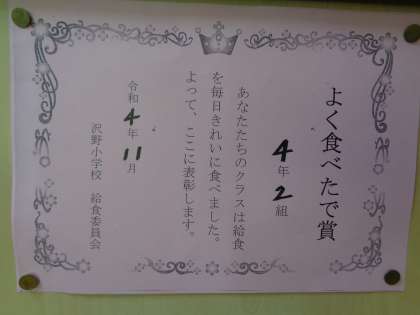 よく食べたで賞
4年2組
あなたたちのクラスは給食
を毎日きれいに食べました。
よって、ここに表彰します。
令和4年11月
沢野小学校 給食委員会